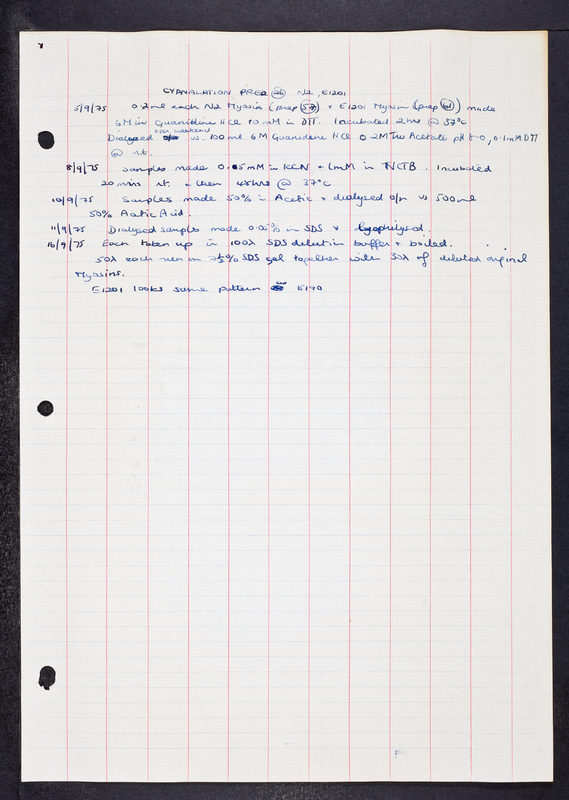 CYANALATION PREP 26 N2, E1201
5/9/75 0.2ml each N2 Myosin (prep 57) + E1201 Myosin (prep 61) made
6M in Guanidine HCl 10mM in DTT. Incubated 2hrs @ 37°C
over weekend
Dialysed vs. 100ml 6M Guanidine HCl 0.2M Tris Acetate pH 8.0, 0.1mM DTT
@ r.t.
8/9/75 Samples made 0.05mM in KCN + 1mM in NCTB. Incubated
20 mins r.t. + then 48hrs @ 37°C
10/9/75 Samples made 50% in Acetic + dialysed o/n vs 500ml
50% Acetic Acid.
11/9/75 Dialysed samples made 0.05% in SDS + lyophilysed.
16/9/75 Each taken up in 100λ SDS dilutin buffer + boiled.
50λ each run on 7½% SDS gel together with 30λ of diluted original
Myosins.
E1201 looks same pattern as E190